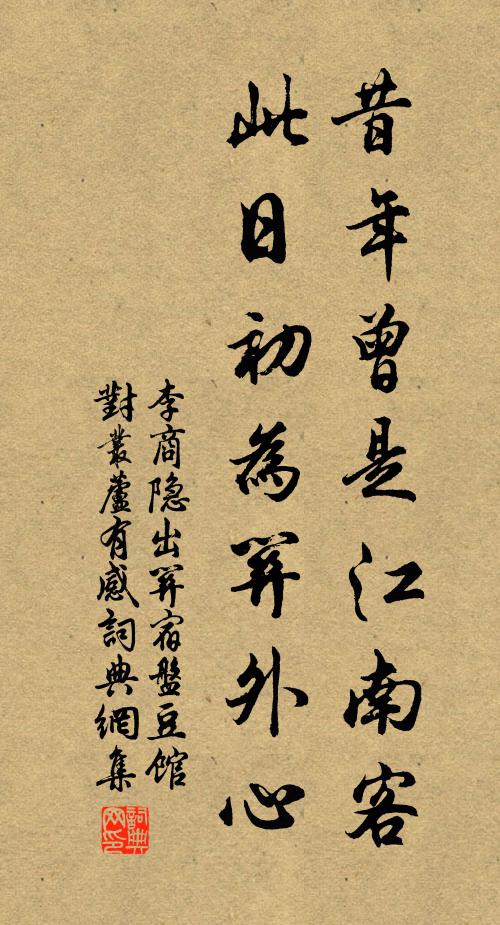 昔年曾是江南客
此日初為關外心
李商隱出關宿盤豆館
對叢蘆有感詞典網集
詞典網印